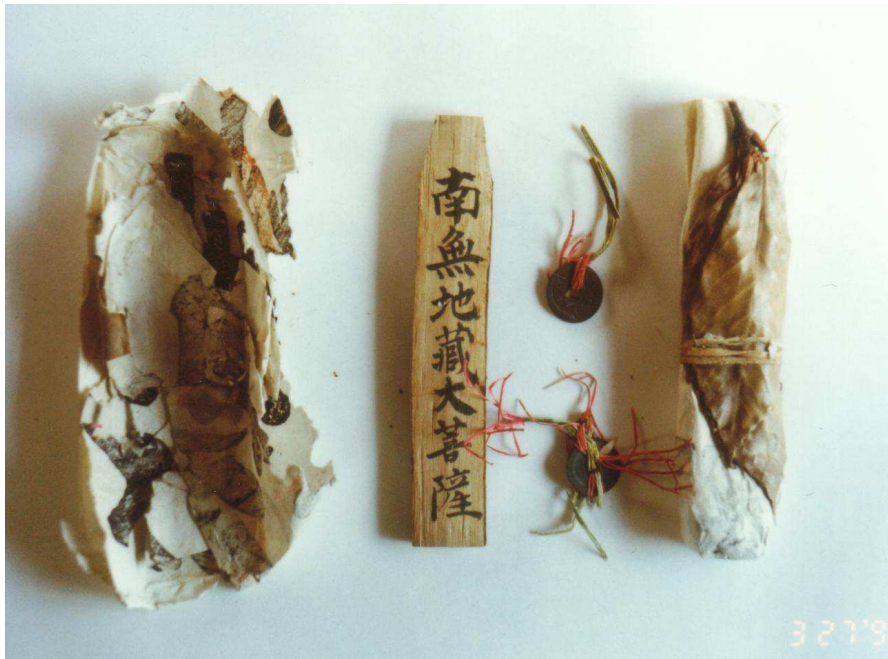 南無地藏大菩薩
3 27'9